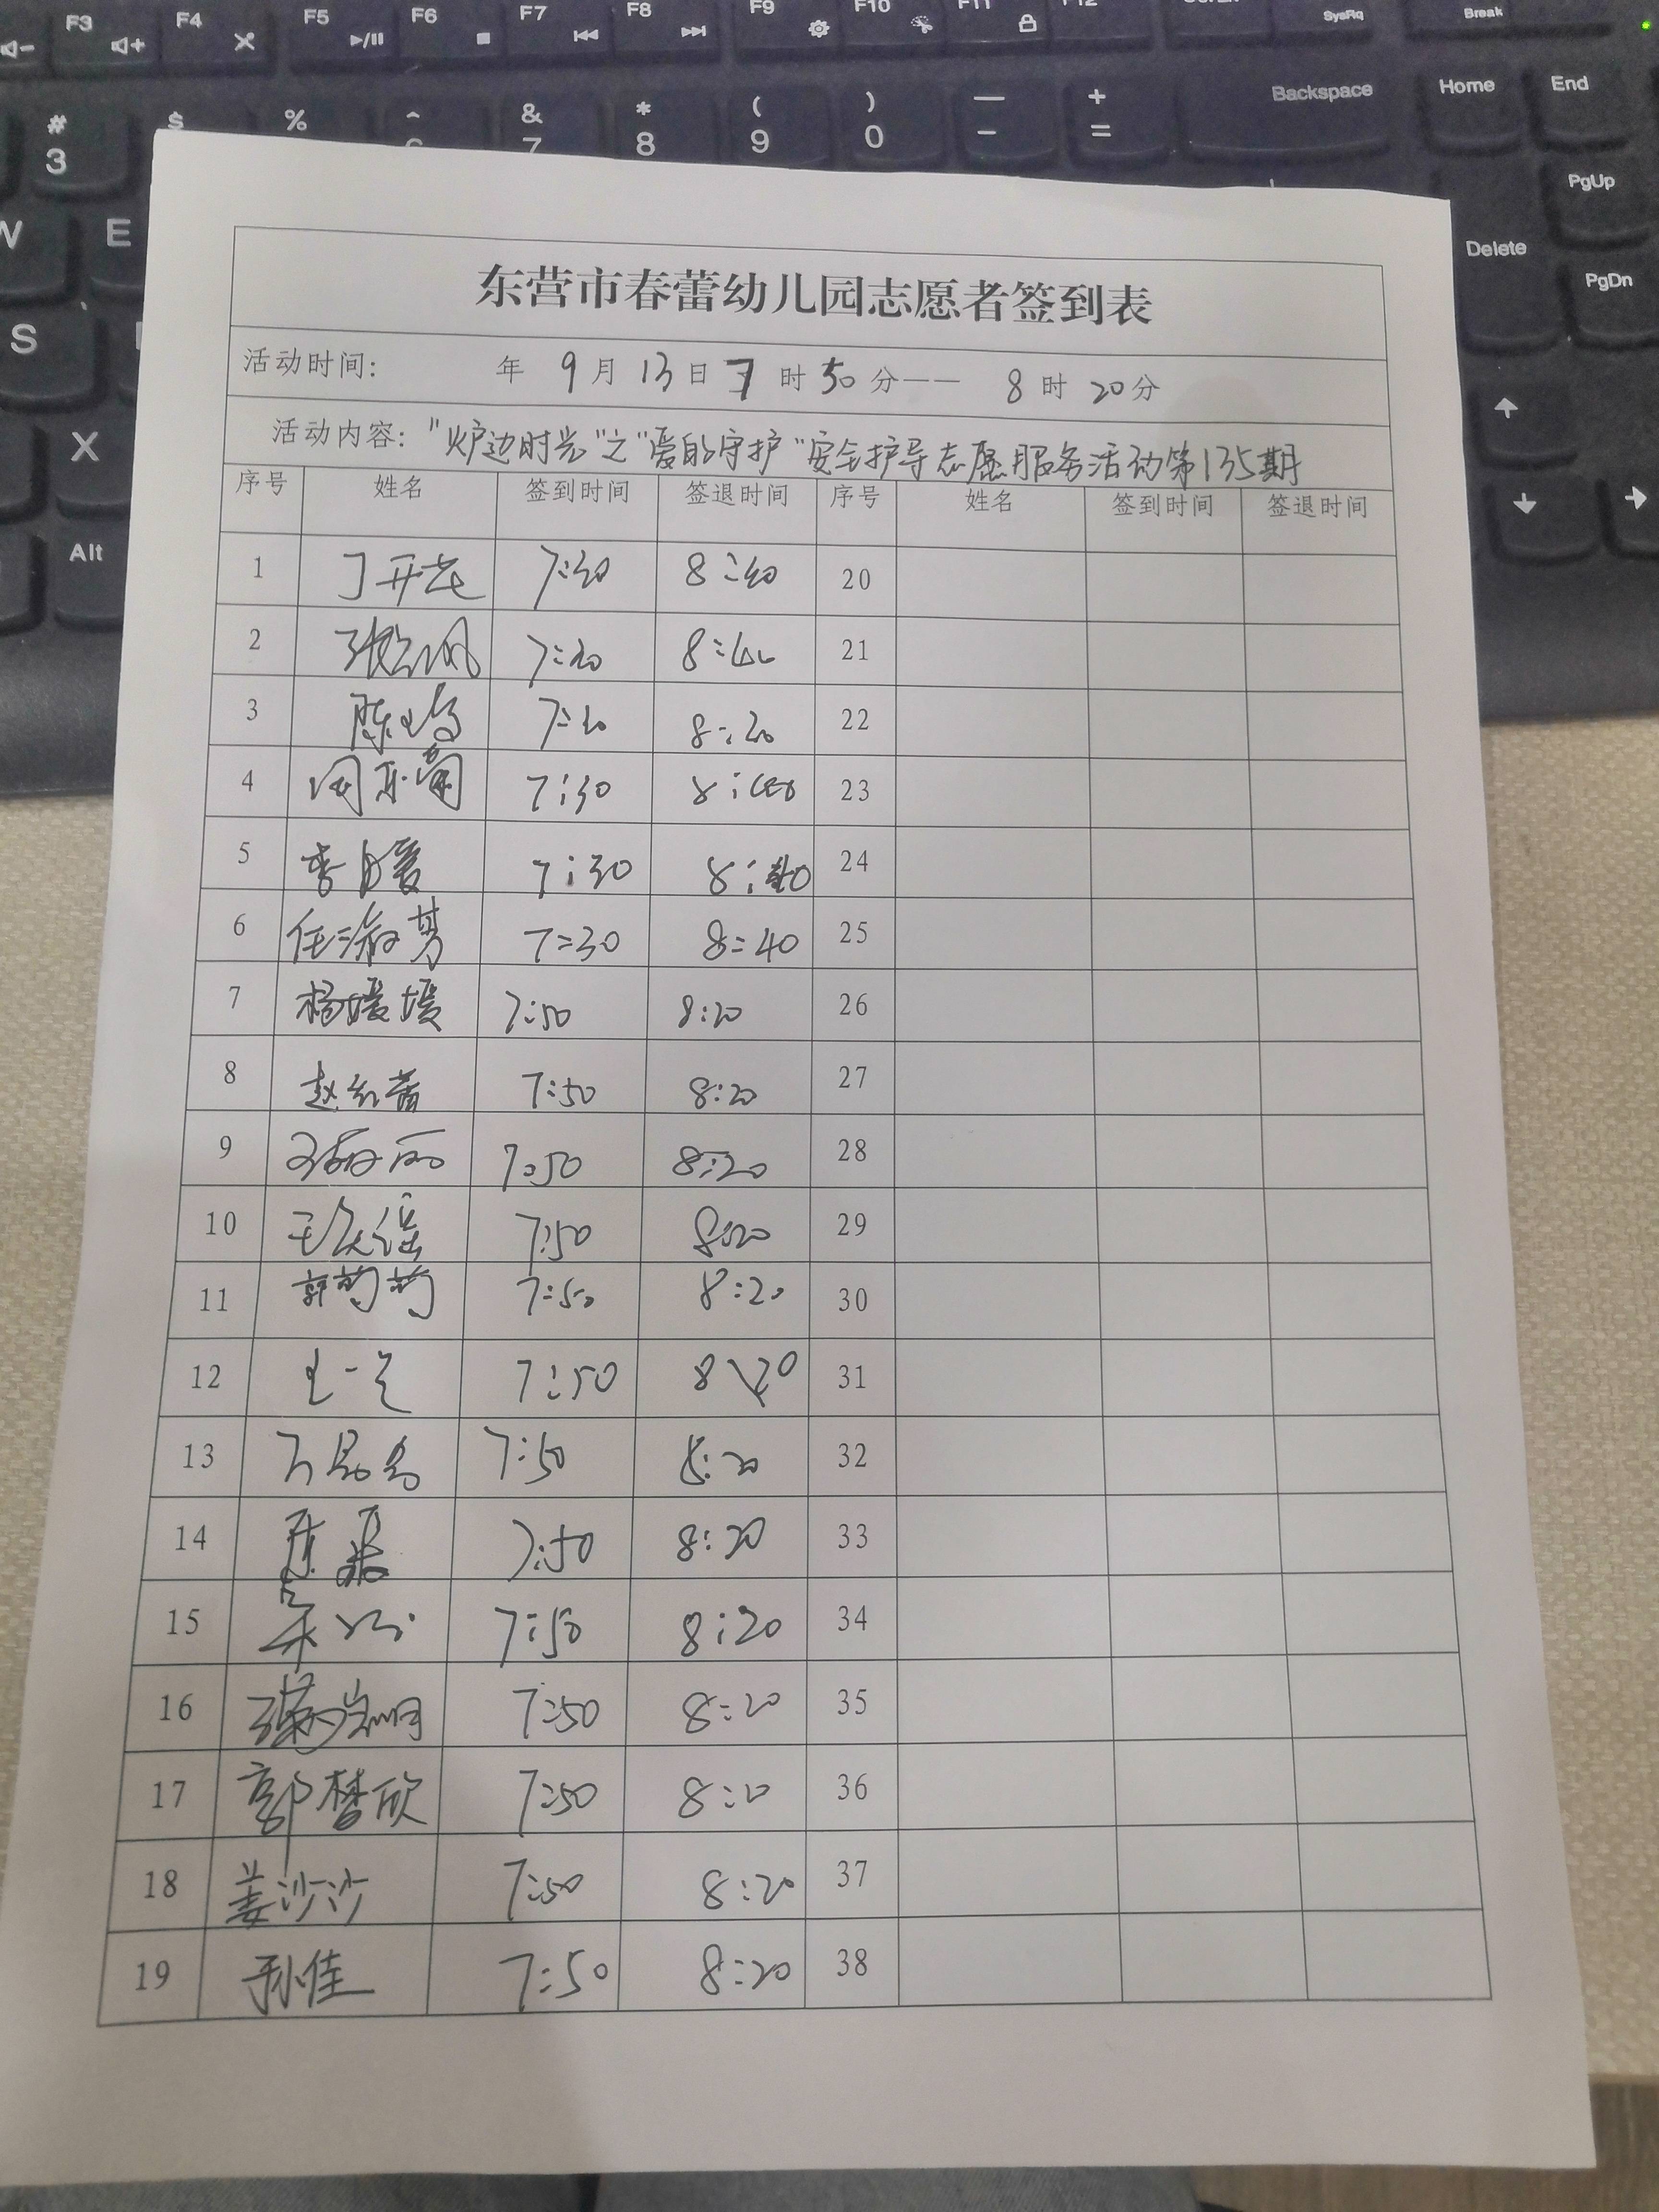 F3 F4 F5 F6 F7 F8 F9 F10 F11 F12 SysRq Break
# $ % ^ & * ( ) — + Backspace Home End
3 7 8 9 0 - =
W E PgUp
Delete
PgDn
S
X
Alt
东营市春蕾幼儿园志愿者签到表
活动时间: 年 9月13日7时50分—— 8时20分
活动内容:"炉边时光"之"爱的守护"安全护导志愿服务活动第135期
序号 姓名 签到时间 签退时间 序号 姓名 签到时间 签退时间
1 7:30 8:40 20
2 8:40 21
3 8:20 22
4 7:30 23
5 7:30 8:40 24
6 任淑芳 7:30 8:40 25
7 杨媛媛 7:50 8:20 26
8 赵红蕾 7:50 8:20 27
9 7:50 8:20 28
10 7:50 8:20 29
11 郭菊菊 7:50 8:20 30
12 7:50 8:20 31
13 7:50 8:20 32
14 7:50 8:20 33
15 7:50 8:20 34
16 7:50 8:20 35
17 郭梦欣 7:50 8:20 36
18 姜沙沙 7:50 8:20 37
19 孙佳 7:50 8:20 38